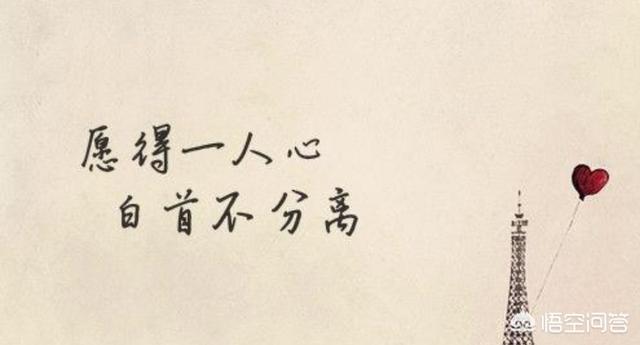 愿得一人心
白首不分离
悟空问答